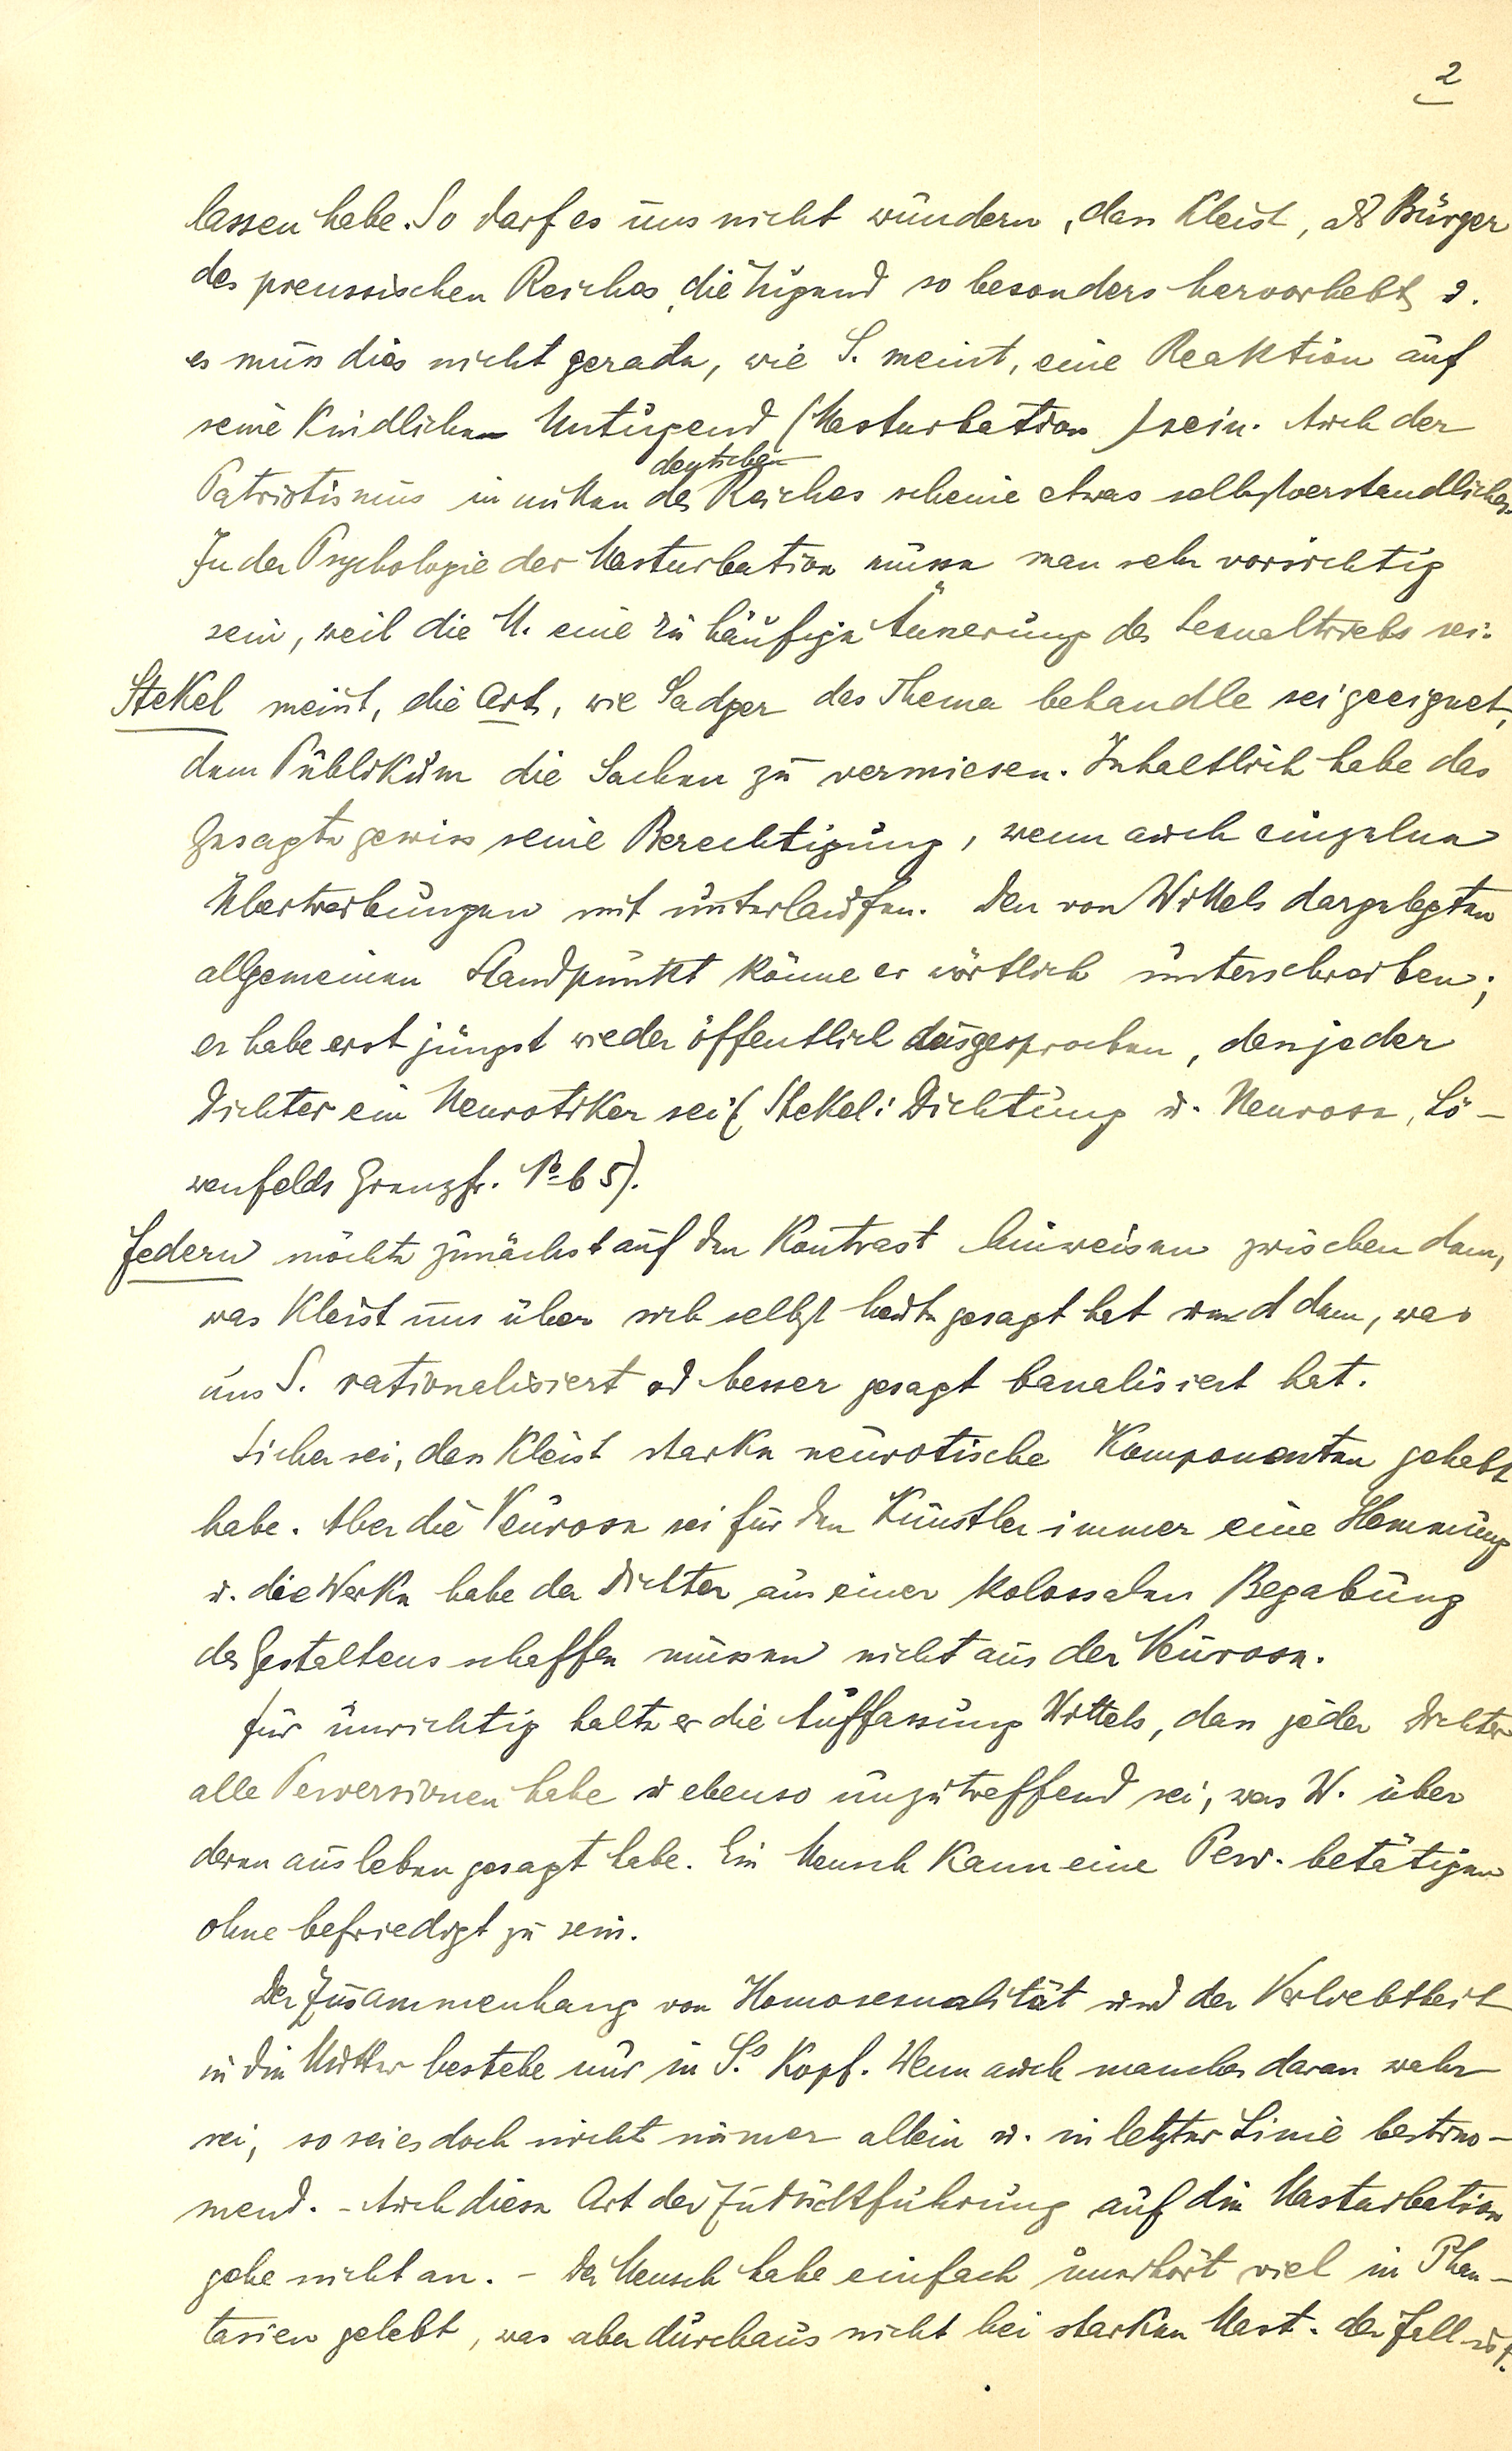 2
lassen habe. So darf es uns nicht wundern, dass Kleist, als Bürger
des preussischen Reiches, die Tugend so besonders hervorhebt u.
es muss dies nicht gerade, wie S. meint, eine Reaktion auf
seine Kindlichen Untugend (Masturbation) sein. Auch der
deutschen
Patriotismus inmitten des Reiches scheine etwas selbstverstandliches.
In der Psychologie der Masturbation müsse man sehr vorsichtig
sein, weil die M. eine zu häufige Äusserung des Sexualtriebs sei.
Stekel meint, die Art, wie Sadger das Thema behandle sei geeignet,
dem Publikum die Sachen zu vermiesen. Inhaltlich habe das
Gesagte gewiss seine Berechtigung, wenn auch einzelne
Übertreibungen mit unterlaufen. Den von Wittels dargelegten
allgemeinen Standpunkt könne er wörtlich unterschreiben;
er habe erst jüngst wieder öffentlich ausgesprochen, dass jeder
Dichter ein Neurotiker sei (Stekel: Dichtung u. Neurose, Lö-
wenfelds Grenzfr. No 65).
Federn möchte zunächst auf den Kontrast hinweisen zwischen dem,
was Kleist uns über sich selbst heute gesagt hat und dem, was
uns S. rationalisiert od besser gesagt banalisiert hat.
Sicher sei, dass Kleist starke neurotische Komponenten gehabt
habe. Aber die Neurose sei für den Künstler immer eine Hemmung
u. die Werke habe der Dichter aus einer kolossalen Begabung
des Gestaltens schaffen müssen nicht aus der Neurose.
Für unrichtig halte er die Auffassung Wittels, dass jeder Dichter
alle Perversionen habe u ebenso unzutreffend sei, was W. über
deren ausleben gesagt habe. Ein Mensch kann eine Perv. betätigen
ohne befriedigt zu sein.
Der Zusammenhang von Homosexualität und der Verliebtheit
in die Mutter bestehe nur in S.s Kopf. Wenn auch manches daran wahr
sei, so sei es doch nicht immer allein u. in letzter Linie bestim-
mend. - Auch diese Art der Zurückführung auf die Masturbation
gehe nicht an. - Der Mensch habe einfach unerhört viel in Phan-
tasien gelebt, was aber durchaus nicht bei starken Mast. der Fall ist.